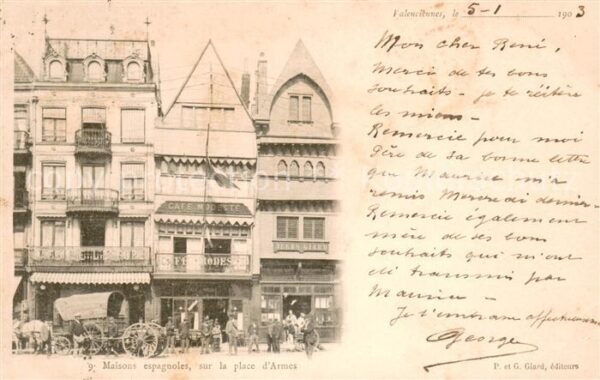 Valenciennes, le 5-1 1903
Mon cher René,
Merci de tes bons
souhaits - je te réitère
les miens -
Remercie pour moi
Père de sa bonne lettre
que Maurice m'a
remis Mercredi dernier -
Remercie également
mère de ses bons
souhaits qui m'ont
été transmis par
Maurice -
Je t'embrasse affectueusement
George
CAFÉ MODÈLE
9. Maisons espagnoles, sur la place d'Armes
P. et G. Giard, éditeurs